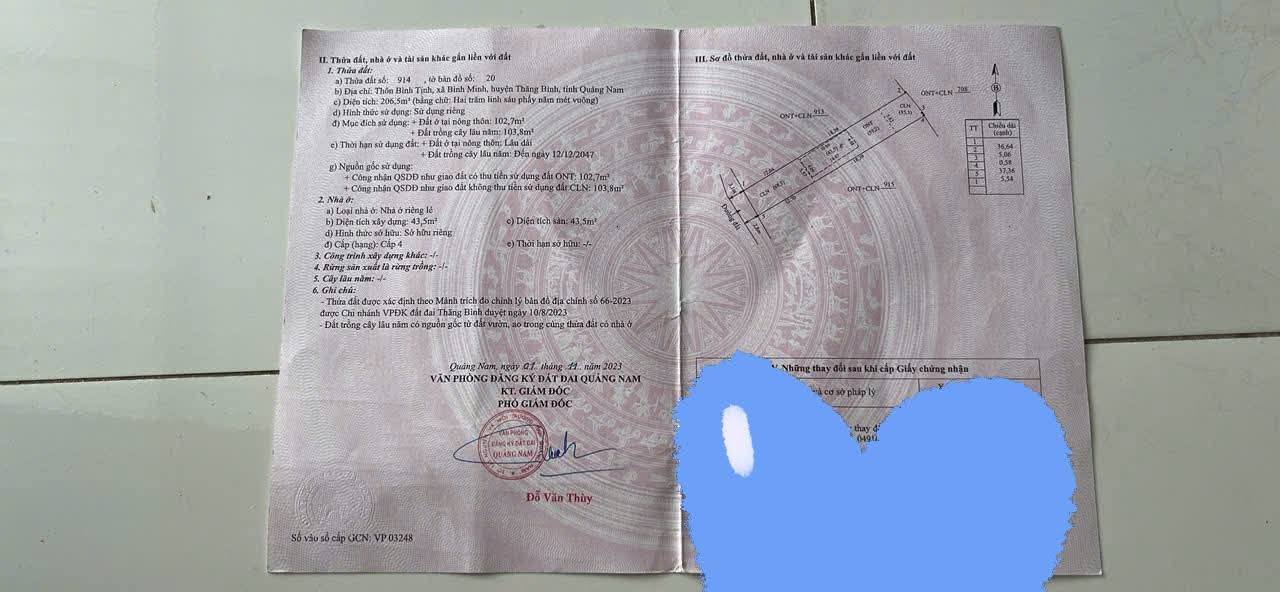 II. Thửa đất, nhà ở và tài sản khác gắn liền với đất
1. Thửa đất:
a) Thửa đất số: 914 , tờ bản đồ số: 20
b) Địa chỉ: Thôn Bình Tịnh, xã Bình Minh, huyện Thăng Bình, tỉnh Quảng Nam
c) Diện tích: 206,5m² (bằng chữ: Hai trăm linh sáu phẩy năm mét vuông)
d) Hình thức sử dụng: Sử dụng riêng
đ) Mục đích sử dụng: + Đất ở tại nông thôn: 102,7m²
+ Đất trồng cây lâu năm: 103,8m²
e) Thời hạn sử dụng đất: + Đất ở tại nông thôn: Lâu dài
+ Đất trồng cây lâu năm: Đến ngày 12/12/2047
g) Nguồn gốc sử dụng:
+ Công nhận QSDĐ như giao đất có thu tiền sử dụng đất ONT: 102,7m²
+ Công nhận QSDĐ như giao đất không thu tiền sử dụng đất CLN: 103,8m²
2. Nhà ở:
a) Loại nhà ở: Nhà ở riêng lẻ
b) Diện tích xây dựng: 43,5m² c) Diện tích sàn: 43,5m²
d) Hình thức sở hữu: Sở hữu riêng
đ) Cấp (hạng): Cấp 4 e) Thời hạn sở hữu: -/-
3. Công trình xây dựng khác: -/-
4. Rừng sản xuất là rừng trồng: -/-
5. Cây lâu năm: -/-
6. Ghi chú:
- Thửa đất được xác định theo Mảnh trích đo chỉnh lý bản đồ địa chính số 66-2023
được Chi nhánh VPĐK đất đai Thăng Bình duyệt ngày 10/8/2023
- Đất trồng cây lâu năm có nguồn gốc từ đất vườn, ao trong cùng thửa đất có nhà ở
Quảng Nam, ngày 01 tháng 11 năm 2023
VĂN PHÒNG ĐĂNG KÝ ĐẤT ĐAI QUẢNG NAM
KT. GIÁM ĐỐC
PHÓ GIÁM ĐỐC
VĂN PHÒNG
ĐĂNG KÝ ĐẤT ĐAI
QUẢNG NAM
Đỗ Văn Thùy
Số vào sổ cấp GCN: VP 03248
III. Sơ đồ thửa đất, nhà ở và tài sản khác gắn liền với đất
ONT+CLN 708
ONT+CLN 913
ONT+CLN 915
CLN
ONT
CLN
Đường đất
TT Chiều dài
(cạnh)
1
2 36,64
3 5,06
4 0,58
5 37,36
1 5,54
Những thay đổi sau khi cấp Giấy chứng nhận
và cơ sở pháp lý
thay đ